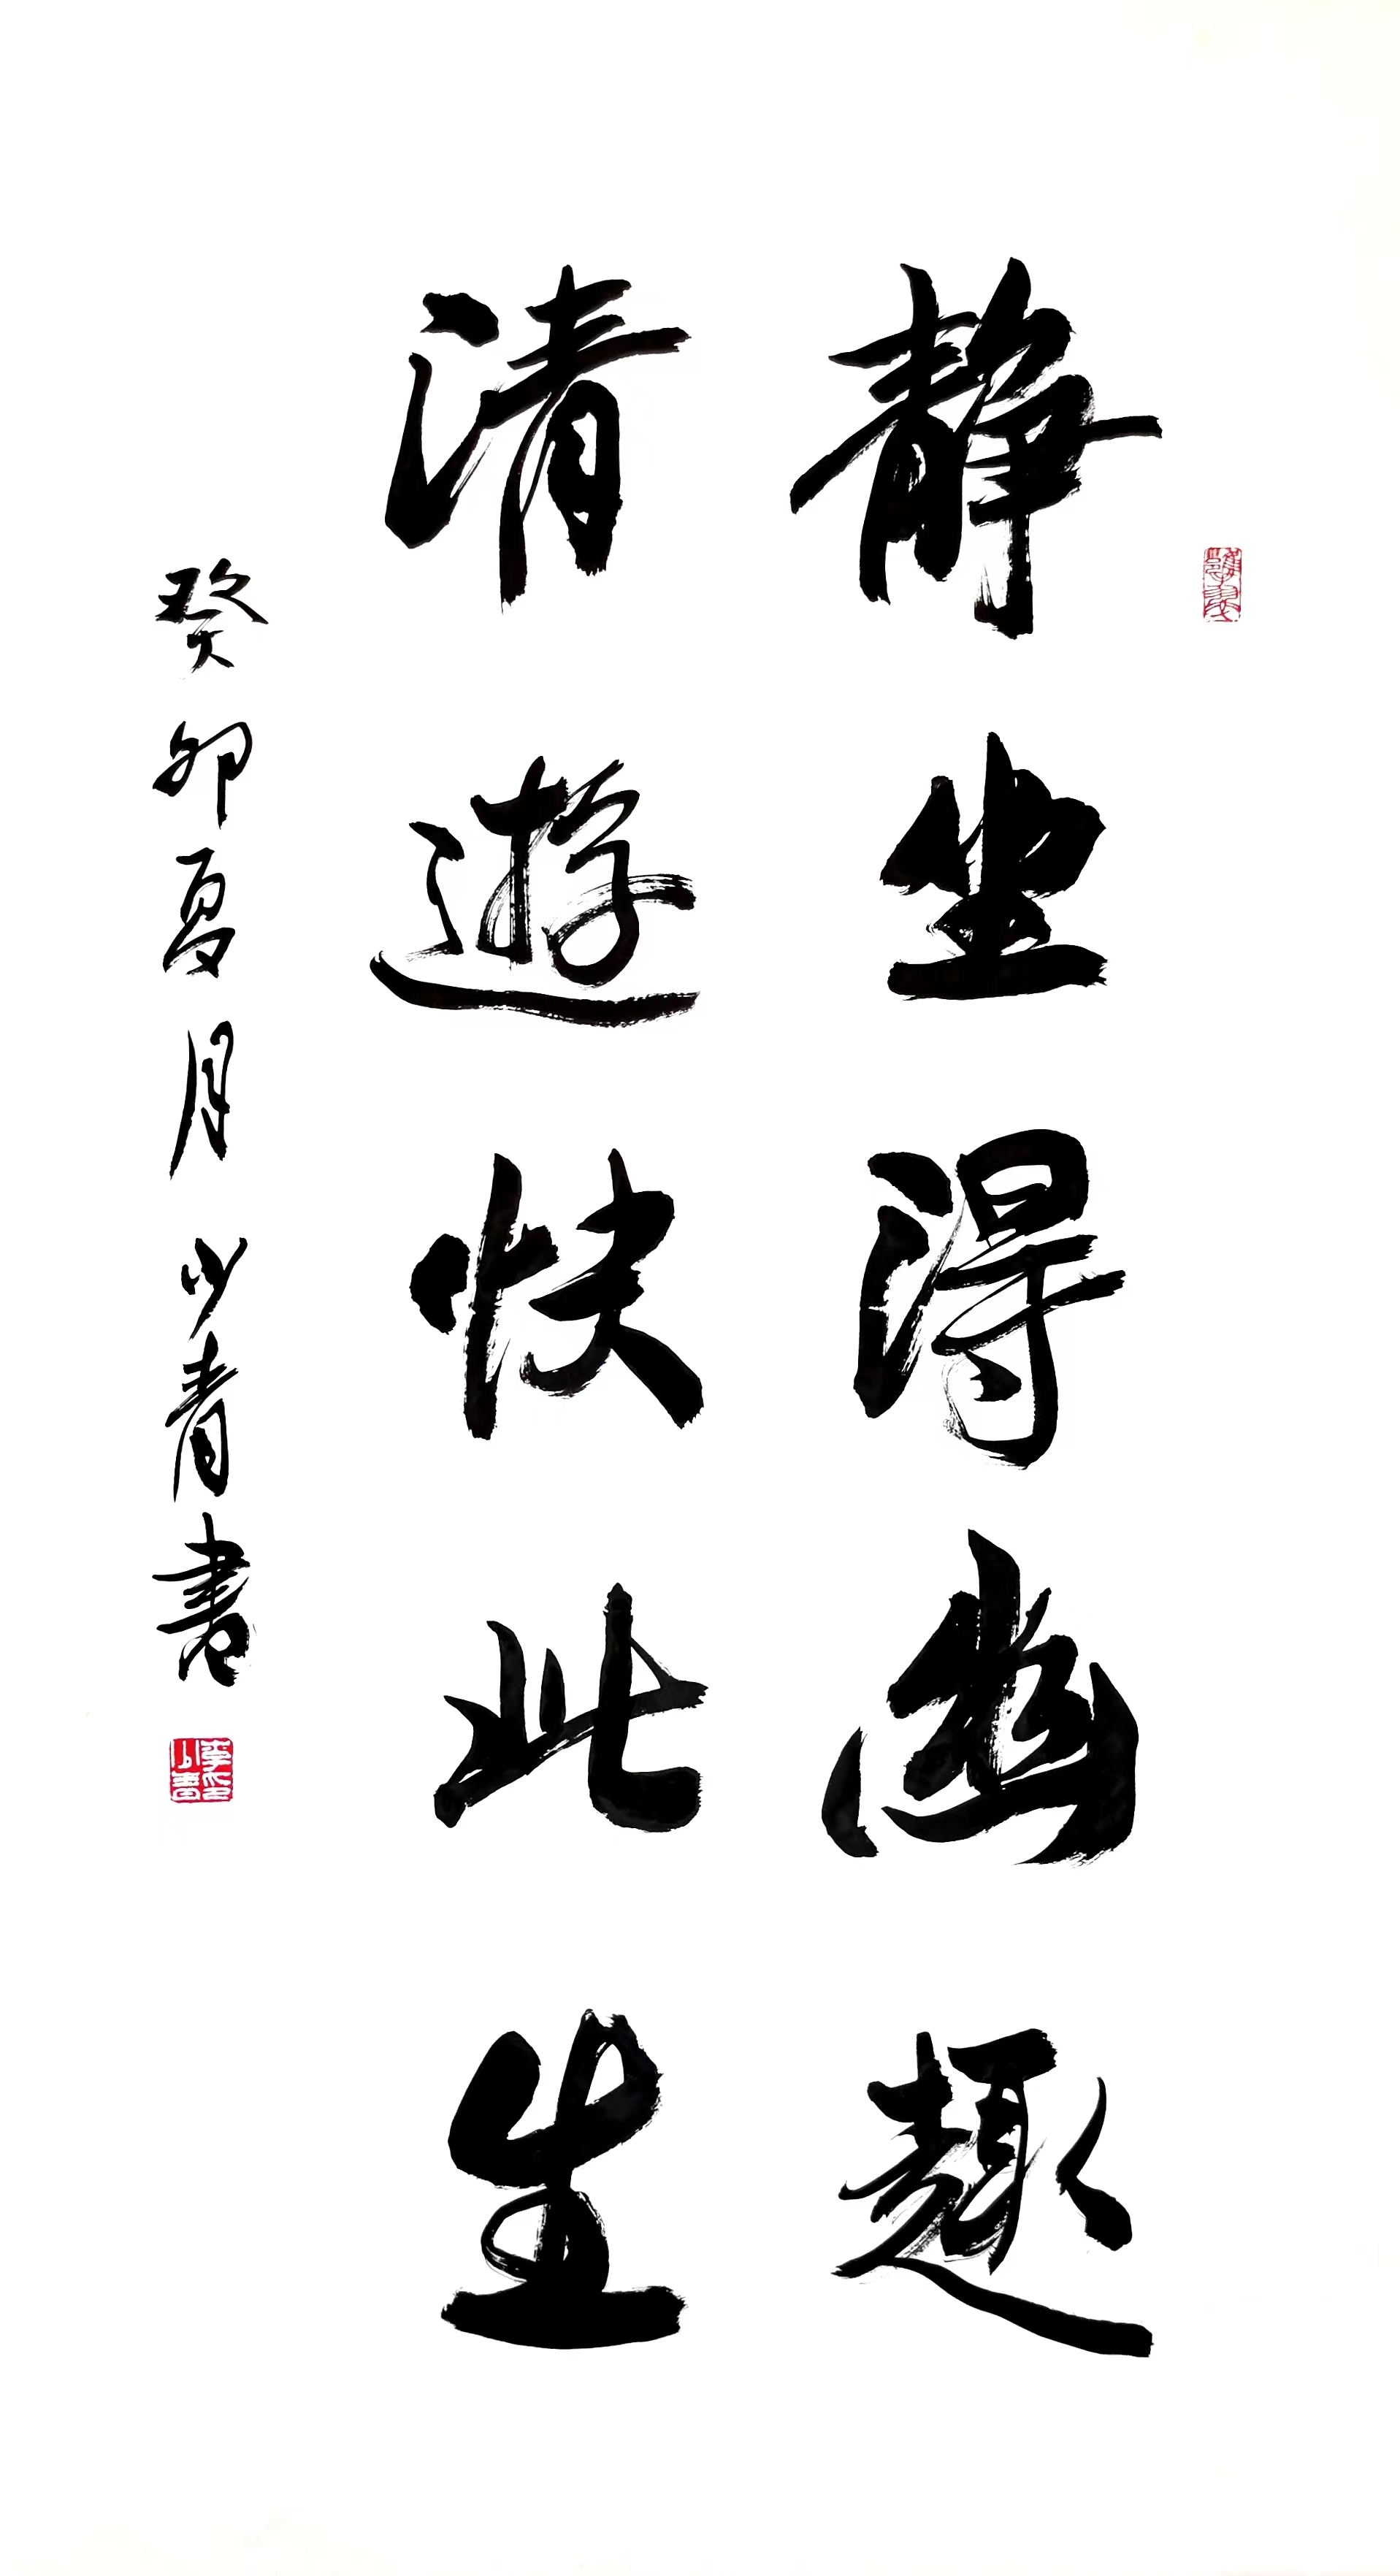 静坐得幽趣
清遊快此生
癸卯夏月少青書